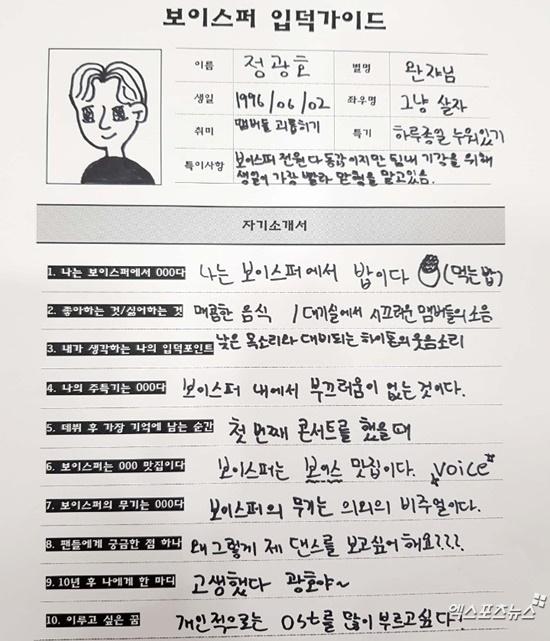 보이스퍼 입덕가이드
이름 정광호 별명 완쟈님
생일 1996/06/02 좌우명 그냥 살자
취미 멤버들 괴롭히기 특기 하루종일 누워있기
특이사항 보이스퍼 전원 다 동갑이지만 팀내 기강을 위해
생일이 가장 빨라 맏형을 맡고있음.
자기소개서
1. 나는 보이스퍼에서 OOO다 나는 보이스퍼에서 밥이다 (먹는밥)
2. 좋아하는 것/싫어하는 것 매콤한 음식 / 대기실에서 시끄러운 멤버들의 소음
3. 내가 생각하는 나의 입덕포인트 낮은 목소리와 대비되는 하이톤의 웃음소리
4. 나의 주특기는 OOO다 보이스퍼 내에서 부끄러움이 없는것이다.
5. 데뷔 후 가장 기억에 남는 순간 첫 번째 콘서트를 했을때
6. 보이스퍼는 OOO 맛집이다 보이스퍼는 보이스 맛집이다. voice
7. 보이스퍼의 무기는 OOO다 보이스퍼의 무기는 의외의 비주얼이다.
8. 팬들에게 궁금한 점 하나 왜 그렇게 제 댄스를 보고싶어 해요???
9. 10년 후 나에게 한 마디 고생했다 광호야~
10. 이루고 싶은 꿈 개인적으로는 OST를 많이 부르고싶다!
엑스포츠뉴스